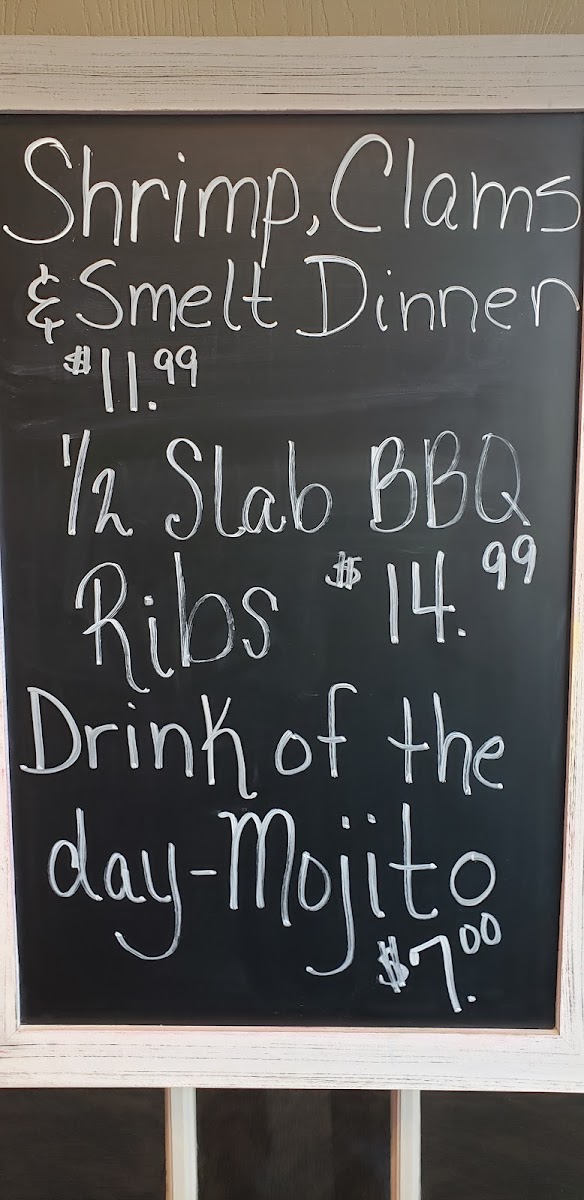 Shrimp, Clams
& Smelt Dinner
$11.99
1/2 Slab BBQ
Ribs $14.99
Drink of the
day-Mojito
$7.00